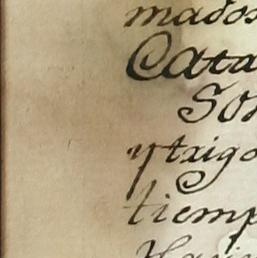 mados
Cata
Son
y trigo
tiemp